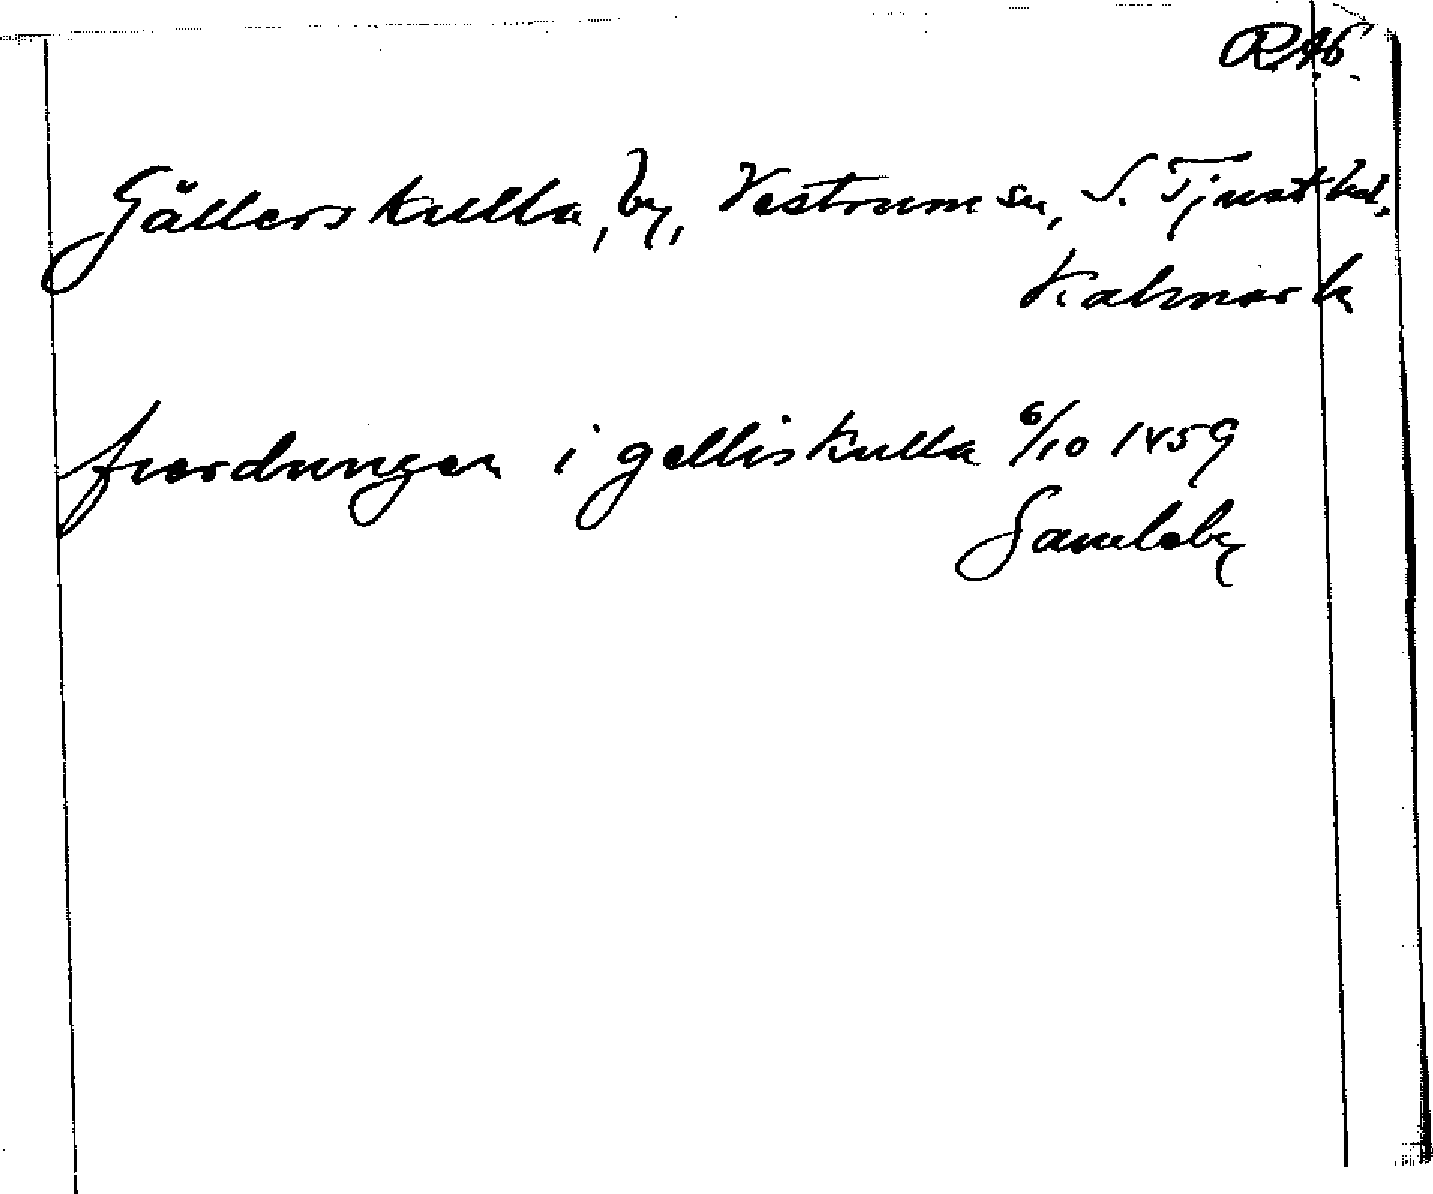 RAb.
Gällerskulla, by, Vestrum sn, S. Tjust hd.
Kalmar l.
fiærdungen i gelliskulla 6/10 1459
Gamleby